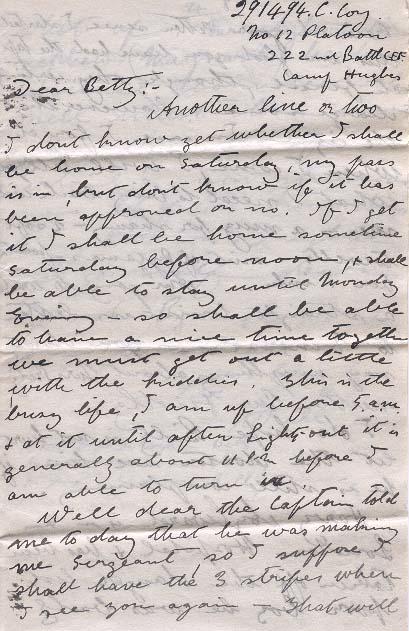 291494. C. Coy.
No 12 Platoon
222nd Battl CEF
Camp Hughes
Dear Betty:-
Another line or two
I don't know yet whether I shall
be home on Saturday, my pass
is in, but don't know if it has
been approved or no. If I get
it I shall be home sometime
Saturday before noon, & shall
be able to stay until Monday
Evening - so shall be able
to have a nice time together
we must get out a little
with the kiddies. This is the
busy life, I am up before 5 a.m.
& at it until after Lights out it is
generally about 11 PM before I
am able to turn in.
Well dear the Captain told
me to day that he was making
me Sergeant, so I suppose I
shall have the 3 stripes when
I see you again - that will